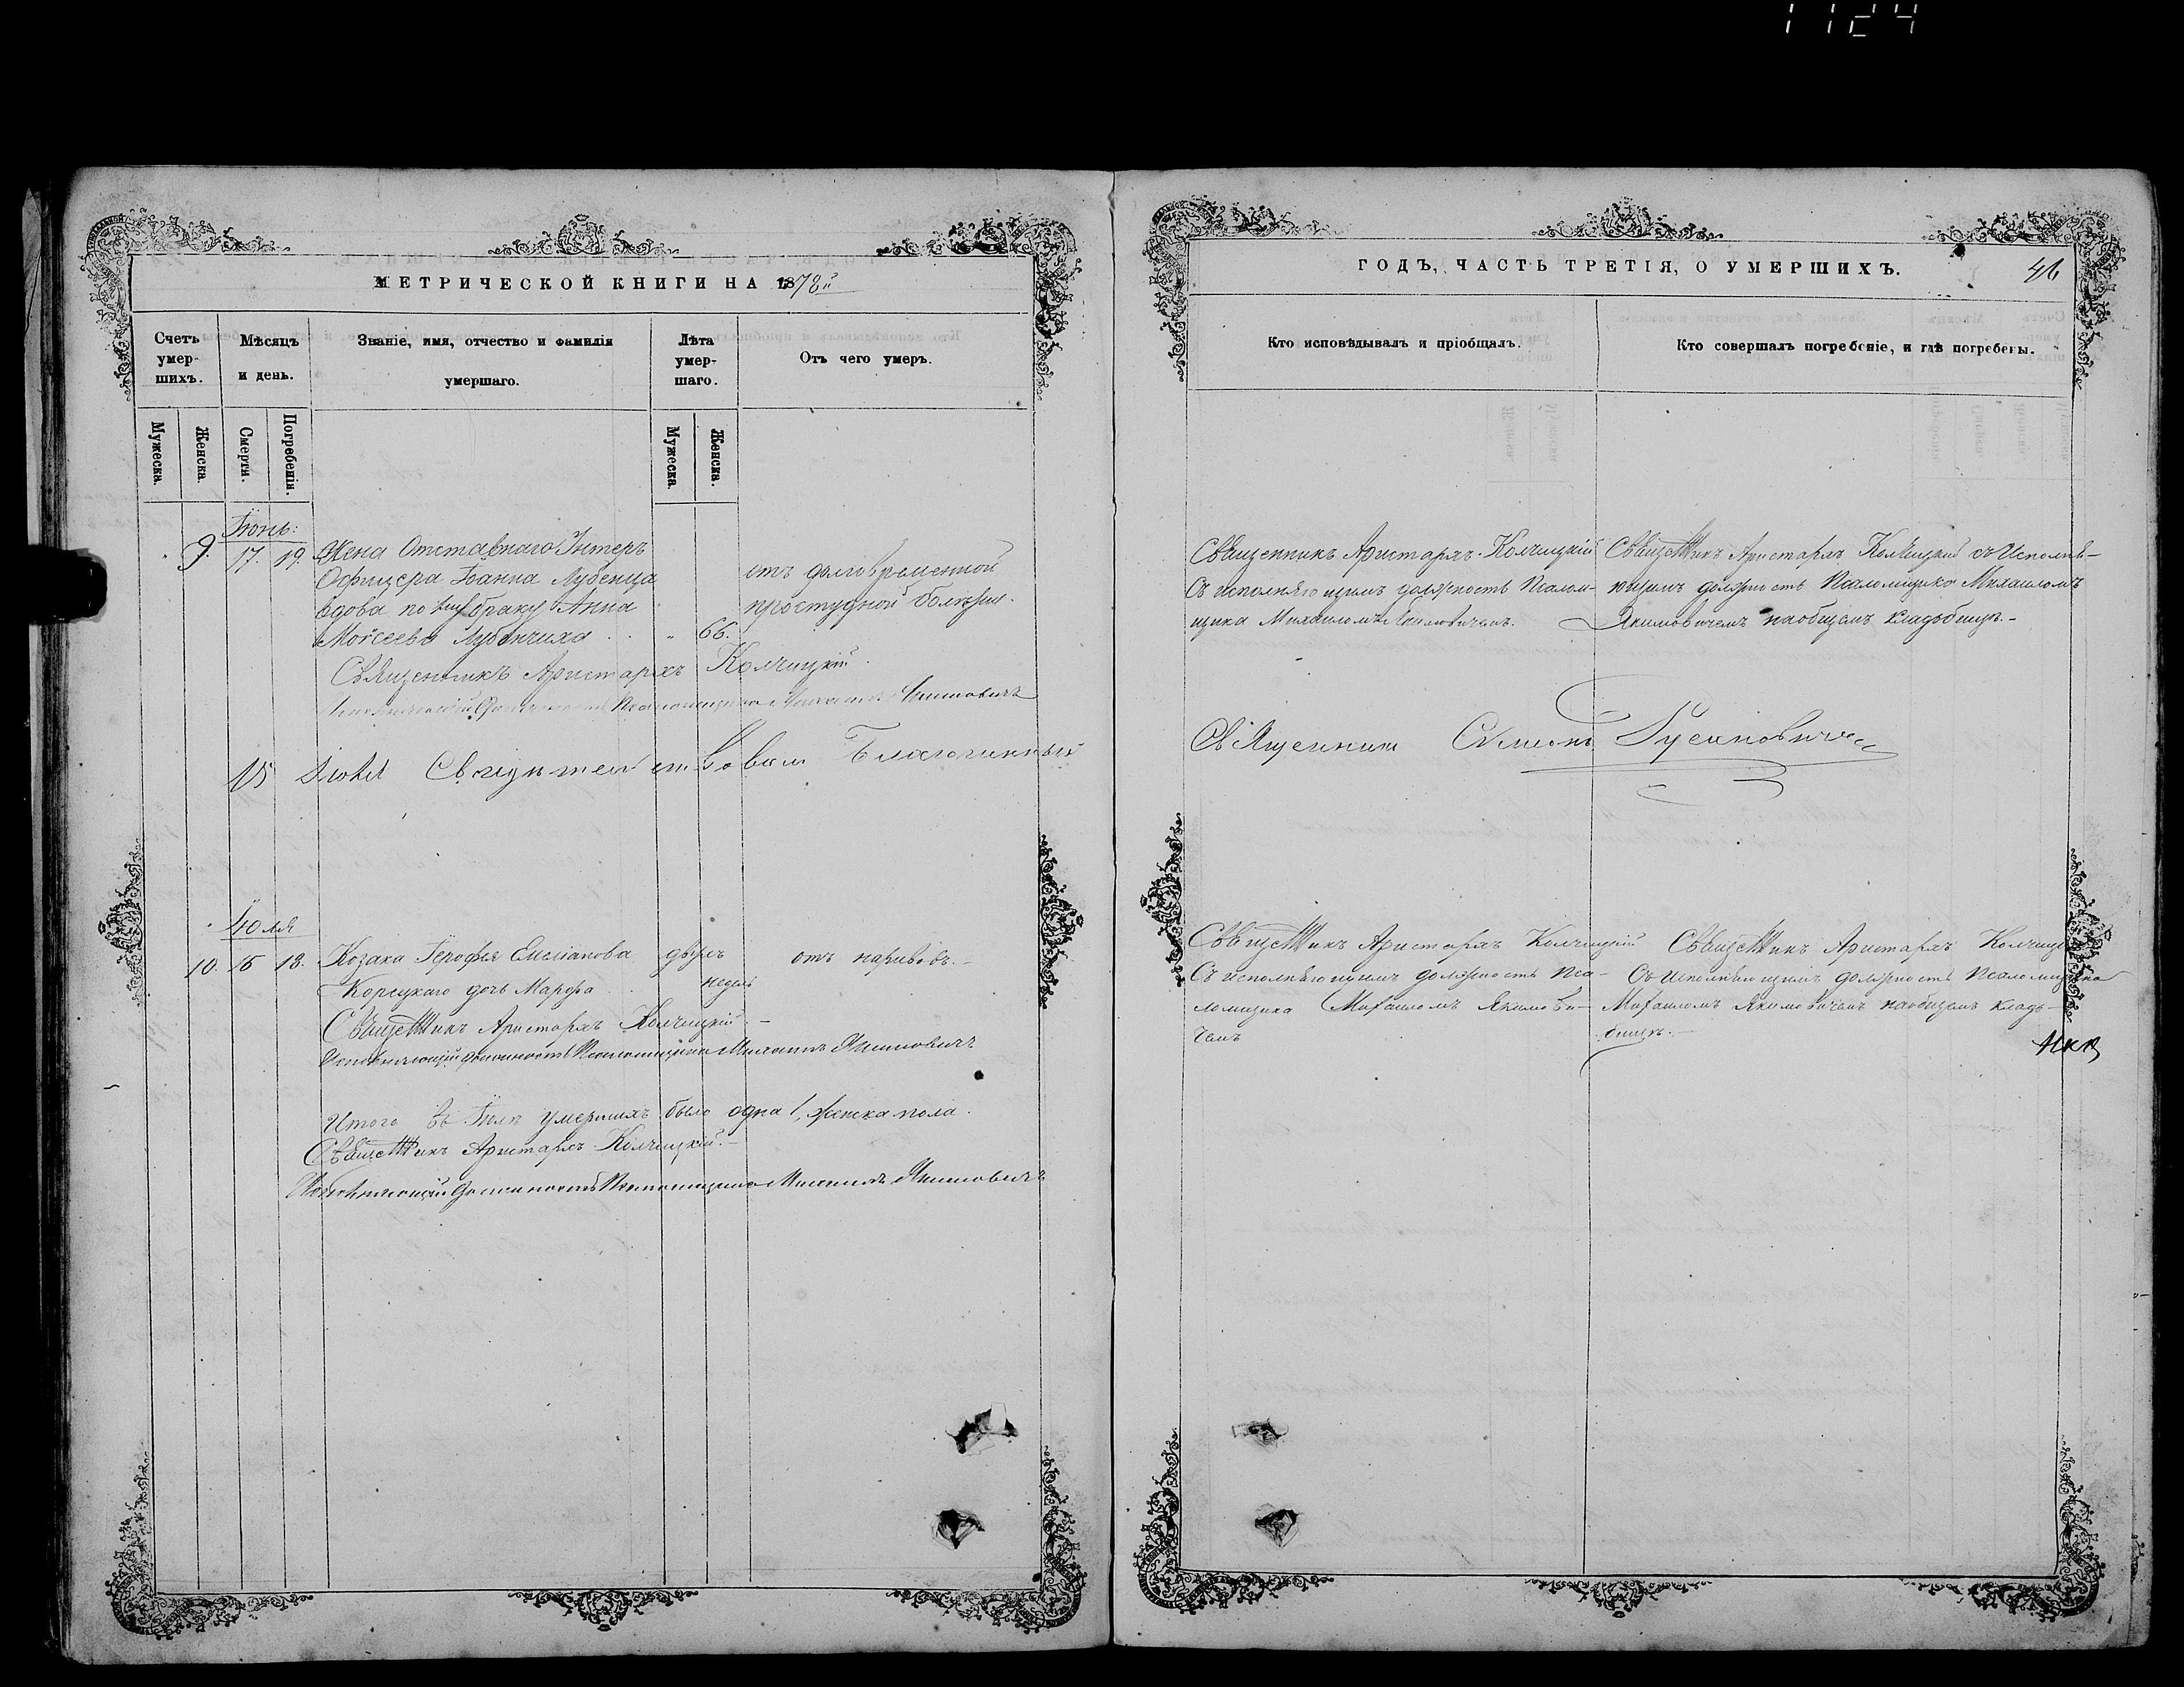 1124
МЕТРИЧЕСКОЙ КНИГИ НА 1878й
Счетъ умер-
шихъ.
Мѣсяцъ
и день.
Званіе, имя, отчество и фамилія
умершаго.
Лѣта
умер-
шаго.
Отъ чего умеръ.
Мужеска.
Женска.
Смерти.
Погребенія.
Мужеска.
Женска.
Іюнь:
9. 17. 19. Жена Отставнаго Унтеръ
Офицера Іоанна Лубенца
вдова по браку Анна
Моѵсеева Лубенчиха 66.
отъ долговременной
простудной болѣзни.
Священникъ Аристархъ Колчицкій
Исполняющій должность Псаломщика Михаилъ Якимовичъ
15 Благочинный
Юля
10. 16 18. Козака Іерофея Емеліанова
Корецкаго дочь Марфа
двухъ
недѣль
отъ наривовъ.
Священникъ Аристархъ Колчицкій
Исполняющій должность Псаломщика Михаилъ Якимовичъ
Итого въ Іюлѣ умершихъ было одна 1, женска пола.
Священникъ Аристархъ Колчицкій.
Исполняющій должность Псаломщика Михаилъ Якимовичъ
ГОДЪ, ЧАСТЬ ТРЕТІЯ, О УМЕРШИХЪ.
46
Кто исповѣдывалъ и пріобщалъ.
Кто совершалъ погребеніе, и гдѣ погребены.
Священникъ Аристархъ Колчицкій
Съ исполняющимъ должность Псалом-
щика Михаиломъ Якимовичемъ.
Священникъ Аристархъ Колчицкій съ Исполня-
ющимъ должность Псаломщика Михаиломъ
Якимовичемъ наобщемъ кладбищѣ.
Священникъ Симеонъ
Священникъ Аристархъ Колчицкій
Съ исполняющимъ должность Пса-
ломщика Михаиломъ Якимови-
чемъ
Священникъ Аристархъ
Съ Исполняющимъ должность Псаломщика
Михаиломъ Якимовичемъ наобщемъ кладъ-
бищѣ.